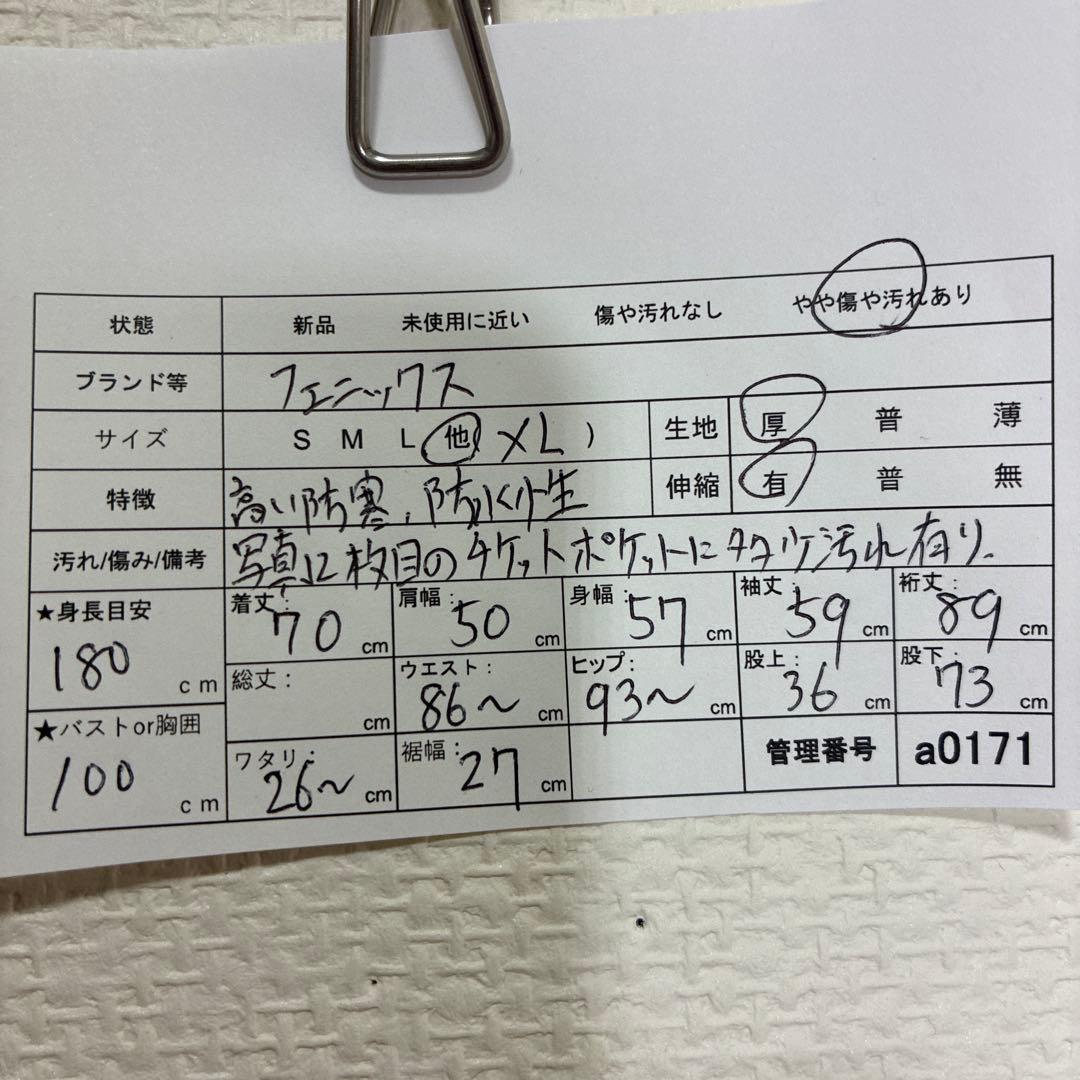 状態 新品 未使用に近い 傷や汚れなし やや傷や汚れあり
ブランド等 フェニックス
サイズ S M L 他 XL ) 生地 厚 普 薄
特徴 高い防寒、防水性 伸縮 有 普 無
汚れ/傷み/備考 写真12枚目のチケットポケットに 汚れ有り、
★身長目安 180 cm 着丈: 70 cm 肩幅: 50 cm 身幅: 57 cm 袖丈: 59 cm 裄丈: 89 cm
総丈: cm ウエスト: 86〜 cm ヒップ: 93〜 cm 股上: 36 cm 股下: 73 cm
★バストor胸囲 100 cm ワタリ: 26〜 cm 裾幅: 27 cm 管理番号 a0171